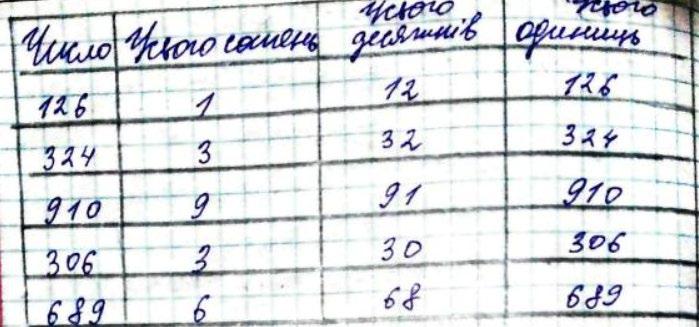 Число Усього сотень Усього десятків Усього одиниць
126 1 12 126
324 3 32 324
910 9 91 910
306 3 30 306
689 6 68 689